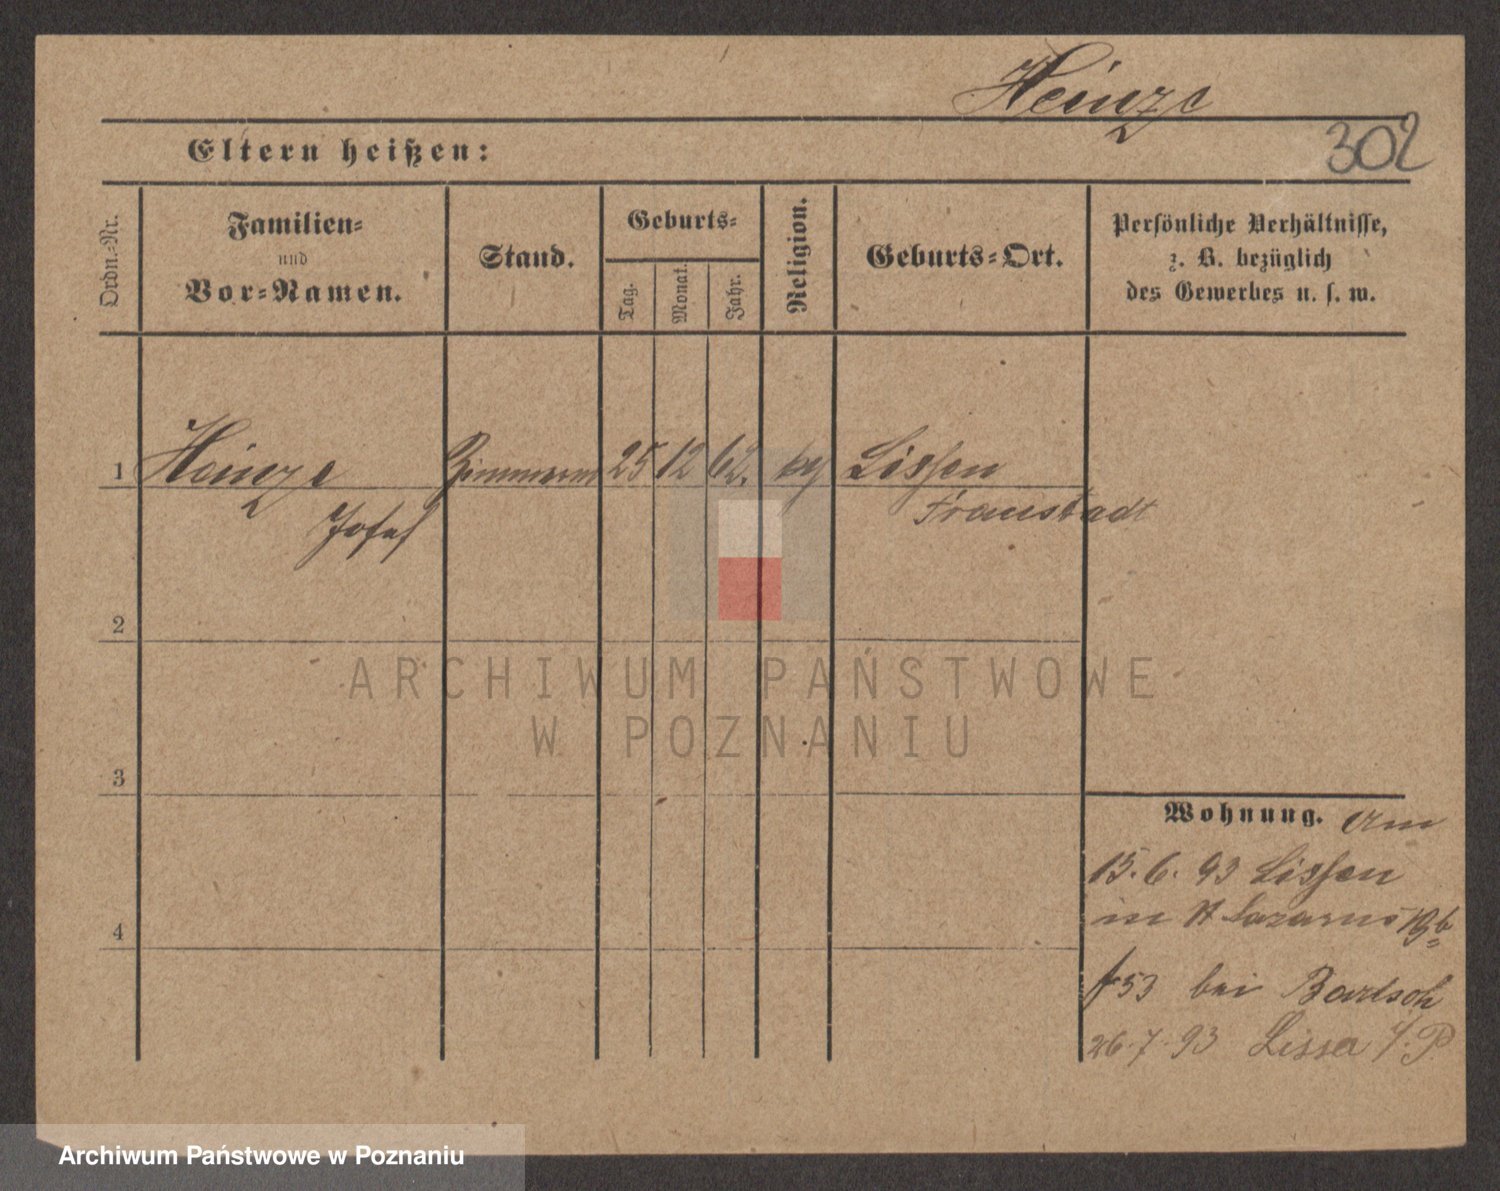 Heinze
302
Eltern heißen:
Ordn.-Nr.
Familien-
und
Vor-Namen.
Stand.
Geburts-
Tag.
Monat.
Jahr.
Religion.
Geburts-Ort.
Persönliche Verhältnisse,
z. B. bezüglich
des Gewerbes u. s. w.
1 Heinze Zimmerm 25 12 62. Lissen
Josef Fraustadt
2
ARCHIWUM PAŃSTWOWE
W POZNANIU
3
Wohnung. Am
15. 6. 93 Lissen
in St Lazarus 19b
53 bei Bartsch
26. 7. 93 Lissa i. P.
4
Archiwum Państwowe w Poznaniu